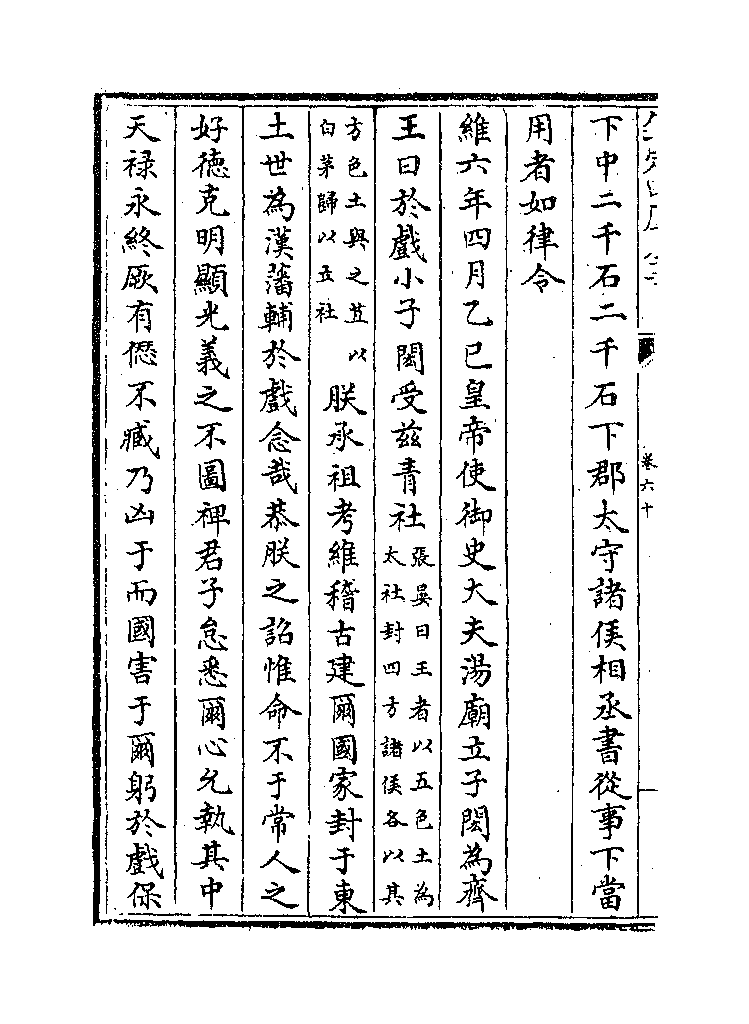 卷六十
下中二千石二千石下郡太守諸侯相丞書從事下當
用者如律令
維六年四月乙巳皇帝使御史大夫湯廟立子閎為齊
王曰於戲小子閎受兹青社張晏曰王者以五色土為太社封四方諸侯各以其
方色土與之苴以白茅歸以立社朕承祖考維稽古建爾國家封于東
土世為漢藩輔於戲念哉恭朕之詔惟命不于常人之
好德克明顯光義之不圖禆君子怠悉爾心允執其中
天禄永終厥有愆不臧乃凶于而國害于爾躬於戲保